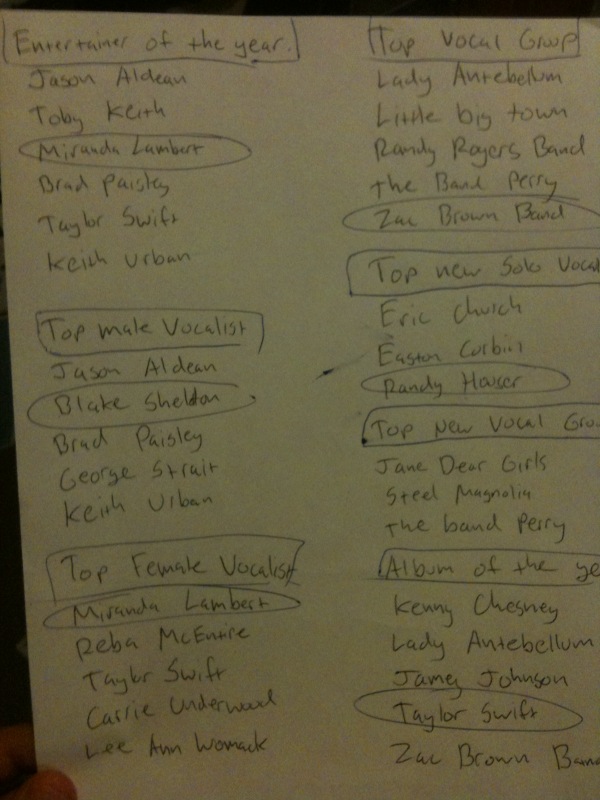 Entertainer of the year.
Jason Aldean
Toby Keith
Miranda Lambert
Brad Paisley
Taylor Swift
Keith Urban
Top male Vocalist
Jason Aldean
Blake Shelton
Brad Paisley
George Strait
Keith Urban
Top Female Vocalist
Miranda Lambert
Reba McEntire
Taylor Swift
Carrie Underwood
Lee Ann Womack
Top Vocal Group
Lady Antebellum
Little big town
Randy Rogers Band
The Band Perry
Zac Brown Band
Top new Solo Vocal
Eric Church
Easton Corbin
Randy Houser
Top New Vocal Grou
Jane Dear Girls
Steel Magnolia
The band Perry
Album of the ye
Kenny Chesney
Lady Antebellum
Jamey Johnson
Taylor Swift
Zac Brown Band